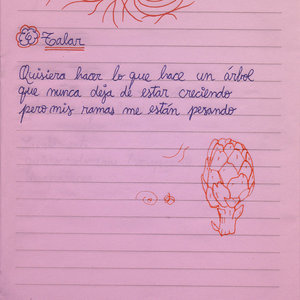 Talar
Quisiera hacer lo que hace un árbol
que nunca deja de estar creciendo
pero mis ramas me están pesando